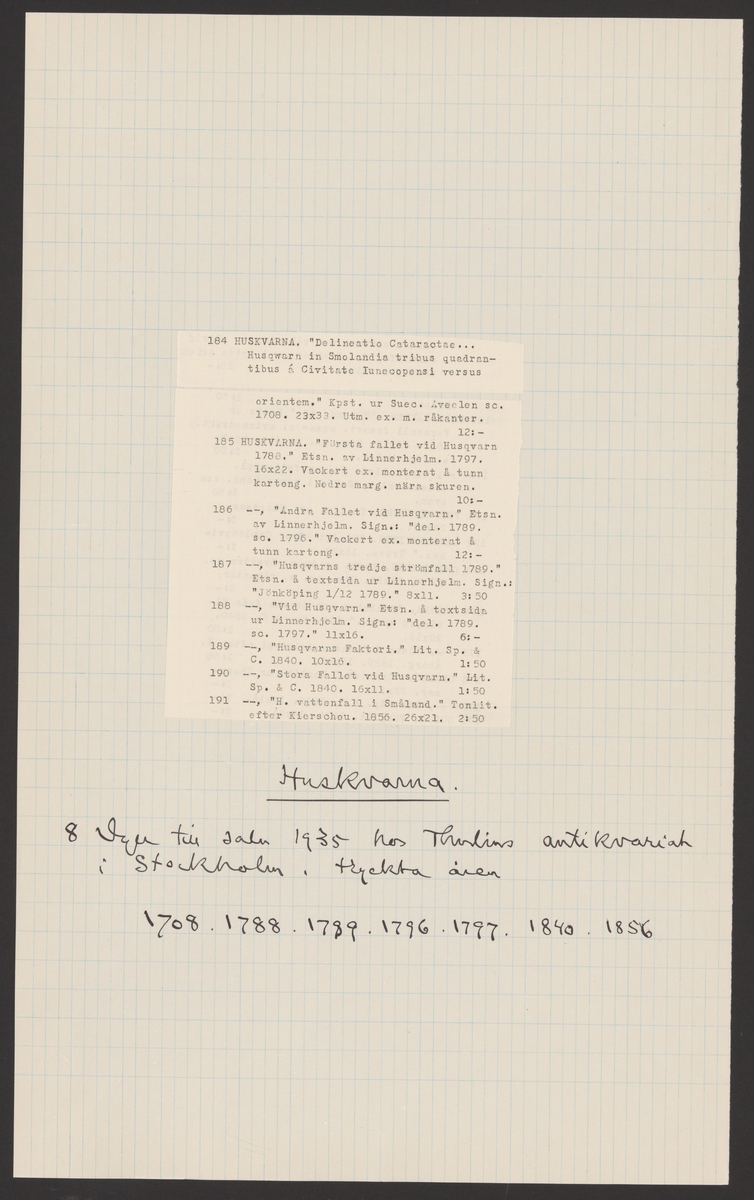 184 HUSKVARNA. "Delineatio Cataractae...
Husqwarn in Smolandia tribus quadran-
tibus á Civitate Iunecopensi versus
orientem." Kpst. ur Suec. Aveelen sc.
1708. 23x33. Utm. ex. m. råkanter.
12:-
185 HUSKVARNA. "Första fallet vid Husqvarn
1788." Etsn. av Linnerhjelm. 1797.
16x22. Vackert ex. monterat å tunn
kartong. Nedre marg. nära skuren.
10:-
186 --, "Andra Fallet vid Husqvarn." Etsn.
av Linnerhjelm. Sign.: "del. 1789.
sc. 1796." Vackert ex. monterat å
tunn kartong. 12:-
187 --, "Husqvarns tredje strömfall 1789."
Etsn. å textsida ur Linnerhjelm. Sign.:
"Jönköping 1/12 1789." 8x11. 3:50
188 --, "Vid Husqvarn." Etsn. å textsida
ur Linnerhjelm. Sign.: "del. 1789.
sc. 1797." 11x16. 6:-
189 --, "Husqvarns Faktori." Lit. Sp. &
C. 1840. 10x16. 1:50
190 --, "Stora Fallet vid Husqvarn." Lit.
Sp. & C. 1840. 16x11. 1:50
191 --, "H. vattenfall i Småland." Tonlit.
efter Kierschou. 1856. 26x21. 2:50
Huskvarna.
8 Vyer till salu 1935 hos Thulins antikvariat
i Stockholm, tryckta åren
1708. 1788. 1789. 1796. 1797. 1840. 1856